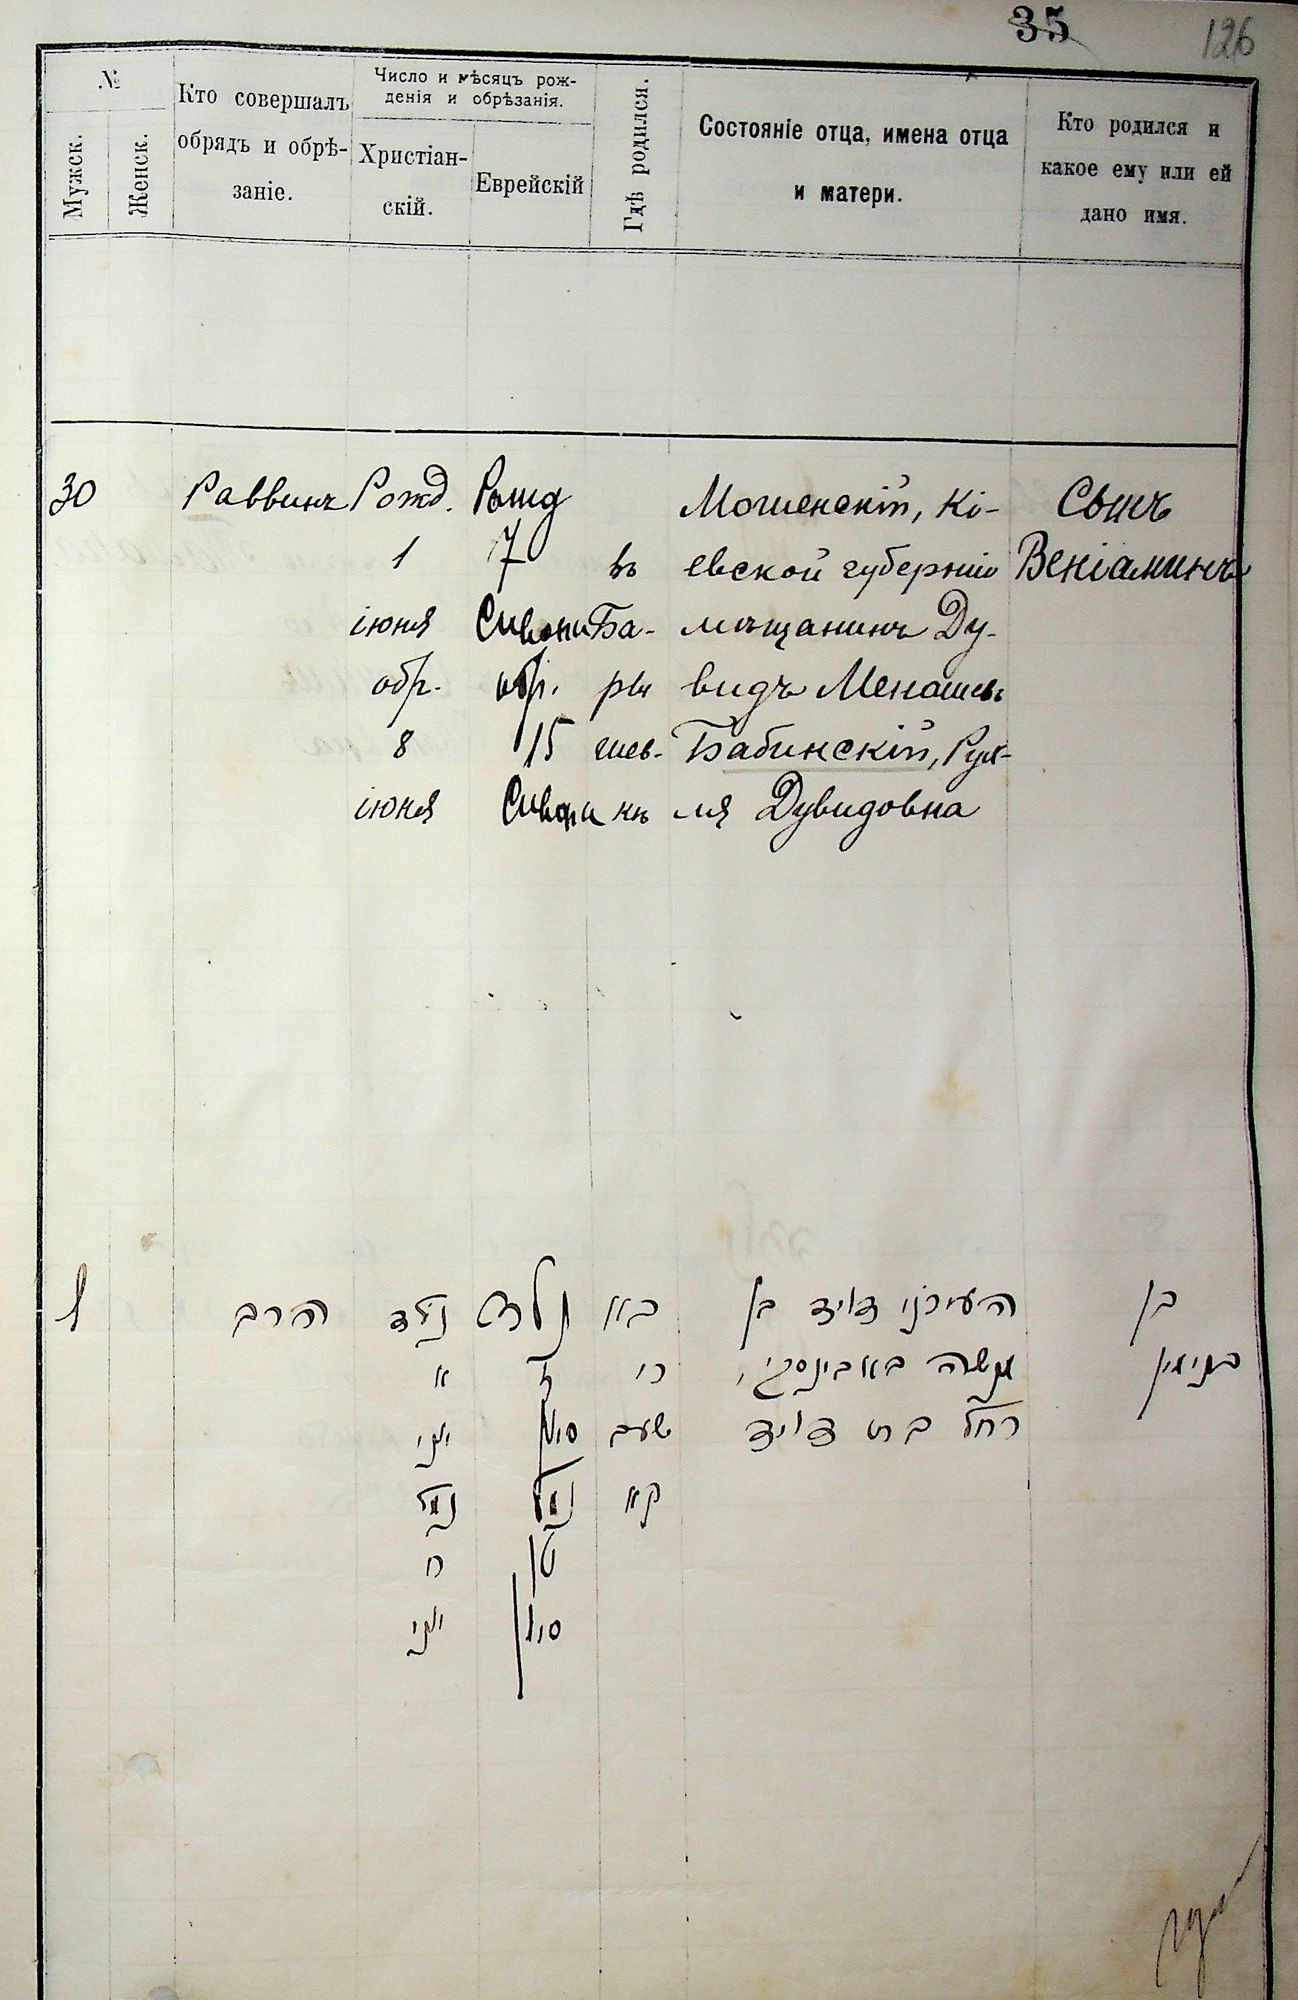 35
126
№
Мужск.
Женск.
Кто совершалъ
обрядъ и обрѣ-
заніе.
Число и мѣсяцъ рож-
денія и обрѣзанія.
Христіан-
скій.
Еврейскій
Гдѣ родился.
Состояніе отца, имена отца
и матери.
Кто родился и
какое ему или ей
дано имя.
30
Раввинъ
Рожд.
1
іюня
обр.
8
іюня
Рожд
7
Сивони
обр.
15
Сивони
въ
Ба-
ры
шев-
кѣ
Мошенскій, Кі-
евской губерніи
мѣщанинъ Ду-
видъ Менашевъ
Бабинскій, Рух-
ля Дувидовна
Сынъ
Веніаминъ
ל
הרב
נולד
א
יוני
נמול
ח
יוני
נולד
ז
סיון
נמול
טו
סיון
בא
רי
שעב
קא
העירוני דויד בן
מנשה באבינסקי,
רחל בת דויד
בן
בנימין